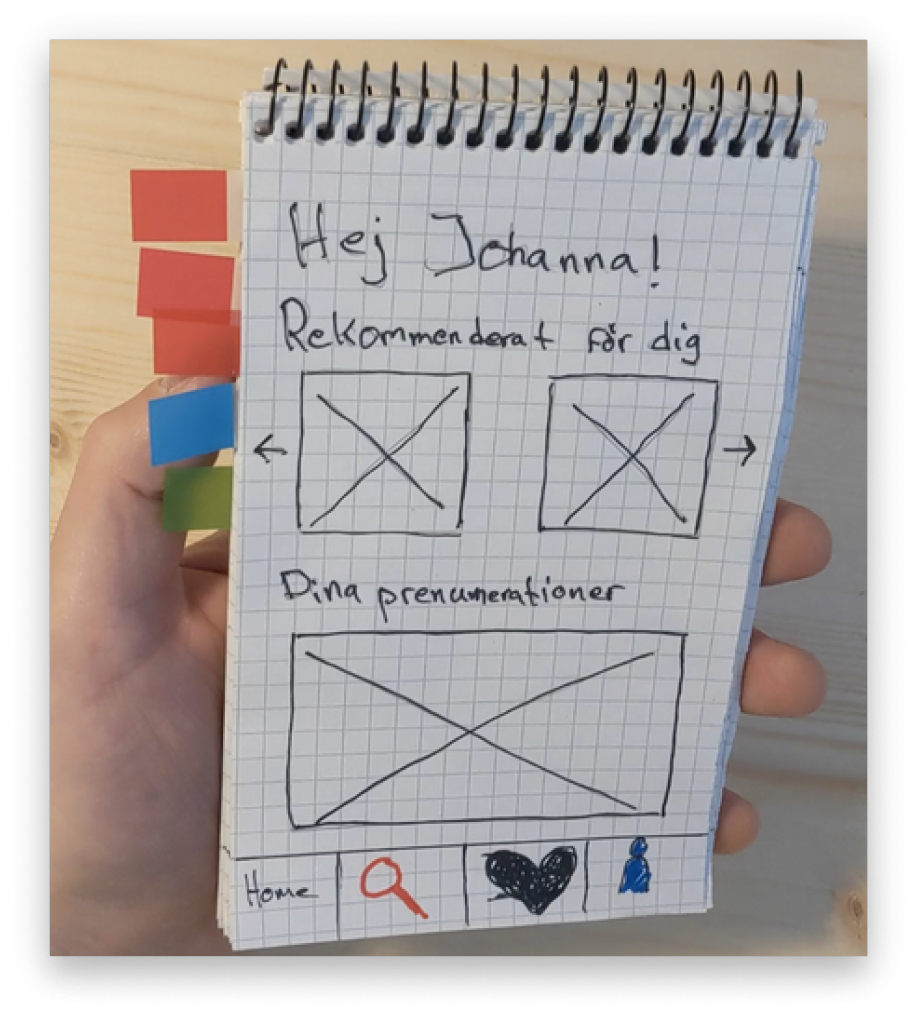 Hej Johanna!
Rekommenderat för dig
Dina prenumerationer
Home